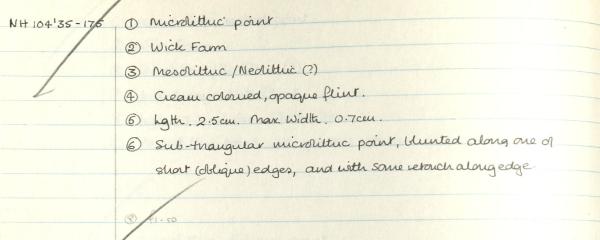 NH 104'35-175 ① Microlithic point
② Wick Farm
③ Mesolithic / Neolithic (?)
④ Cream coloured, opaque flint.
⑤ Lgth. 2.5cm. Max Width. 0.7cm.
⑥ Sub-triangular microlithic point, blunted along one of
short (oblique) edges, and with some retouch along edge